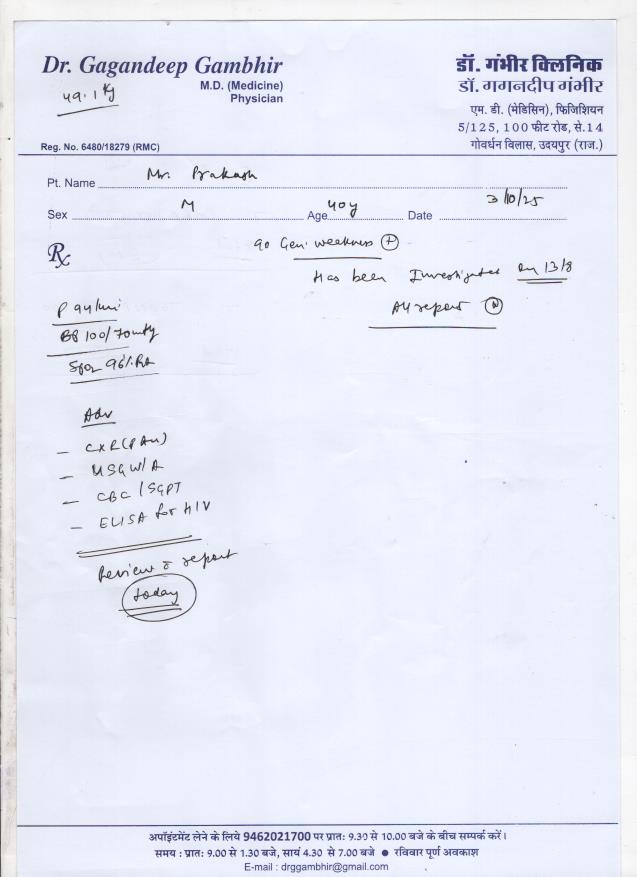 Dr. Gagandeep Gambhir
M.D. (Medicine)
Physician
49.1 kg
Reg. No. 6480/18279 (RMC)
डॉ. गंभीर क्लिनिक
डॉ. गगनदीप गंभीर
एम. डी. (मेडिसिन), फिजिशियन
5/125, 100 फीट रोड, से.14
गोवर्धन विलास, उदयपुर (राज.)
Pt. Name Mr. Prakash
Sex M Age 40y Date 3/10/25
Rx
Gen. weakness
Has been Investigated on 13/8
All report (N)
P 94/min
BP 100/70
SpO2 96% RA
Adv
- CXR (PA)
- USG W/A
- CBC / SGPT
- ELISA for HIV
Review c̄ report
today
अपॉइंटमेंट लेने के लिये 9462021700 पर प्रातः 9.30 से 10.00 बजे के बीच सम्पर्क करें।
समय : प्रातः 9.00 से 1.30 बजे, सायं 4.30 से 7.00 बजे ● रविवार पूर्ण अवकाश
E-mail : drggambhir@gmail.com